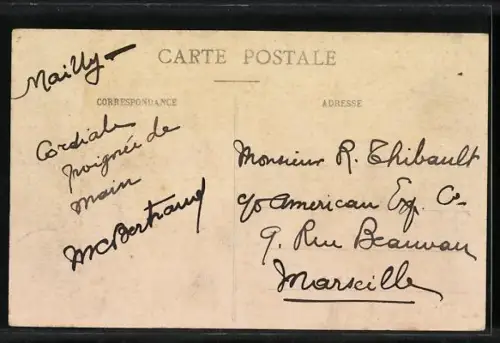 CARTE POSTALE
CORRESPONDANCE
Mailly
Cordiale
poignée de
main
McBertrand
ADRESSE
Monsieur R. Thibault
c/o American Exp. Co
9. Rue Beauvau
Marseille